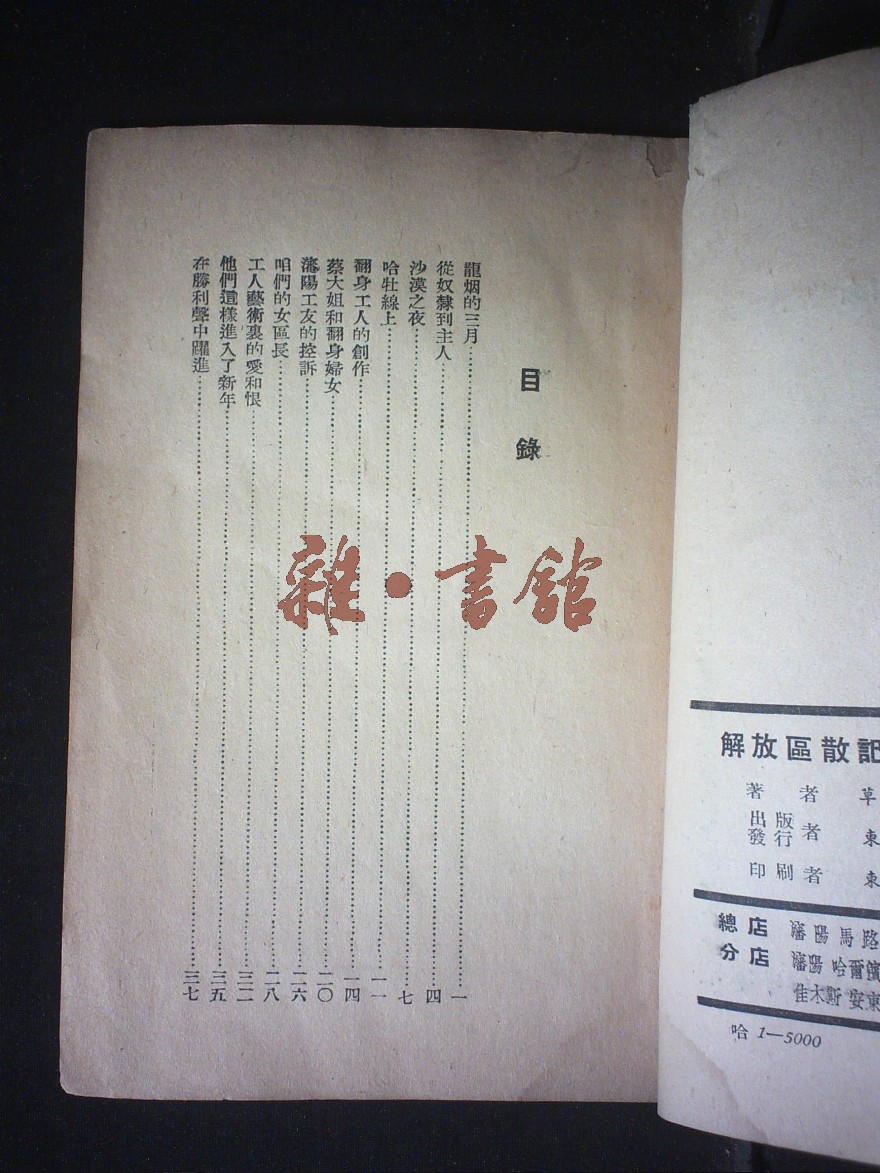 目錄
龍烟的三月……一
從奴隸到主人……四
沙漠之夜……七
哈牡線上……一一
翻身工人的創作……一四
蔡大姐和翻身婦女……二〇
瀋陽工友的控訴……二六
咱們的女區長……二八
工人藝術裏的愛和恨……三二
他們這樣進入了新年……三五
在勝利聲中躍進……三七
雜·書館
解放區散記
著者 草
出版發行者 東
印刷者 東
總店 瀋陽馬路
分店 瀋陽 哈爾濱
佳木斯 安東
哈 1—5000